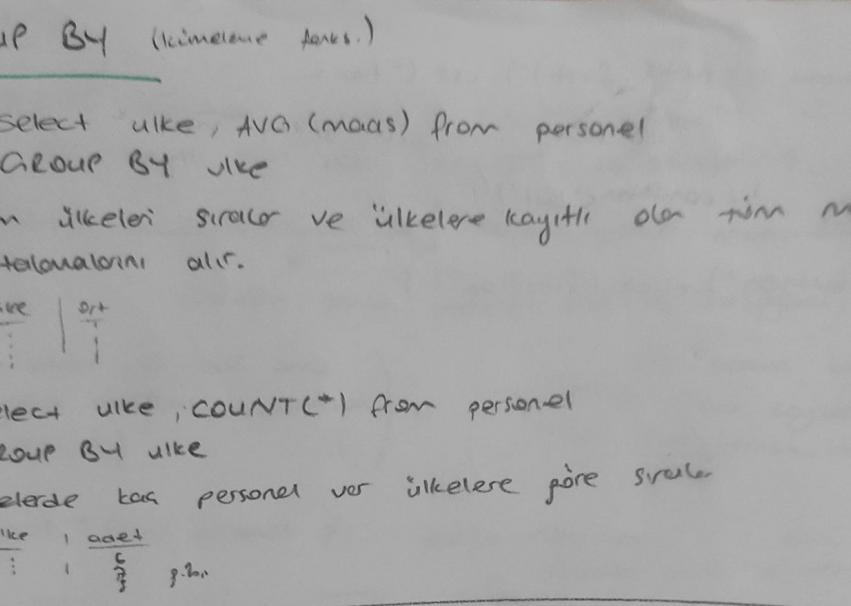 UP BY (kümeleme fonks.)
Select ulke, AVG (maas) from personel
GROUP BY ulke
ülkeleri sıralar ve ülkelere kayıtlı olan tüm
talamalarını alır.
ke | ort
elect ulke, COUNT(*) from personel
ROUP BY ulke
elerde kaç personel var ülkelere göre sıralar
lke | adet
g.b..